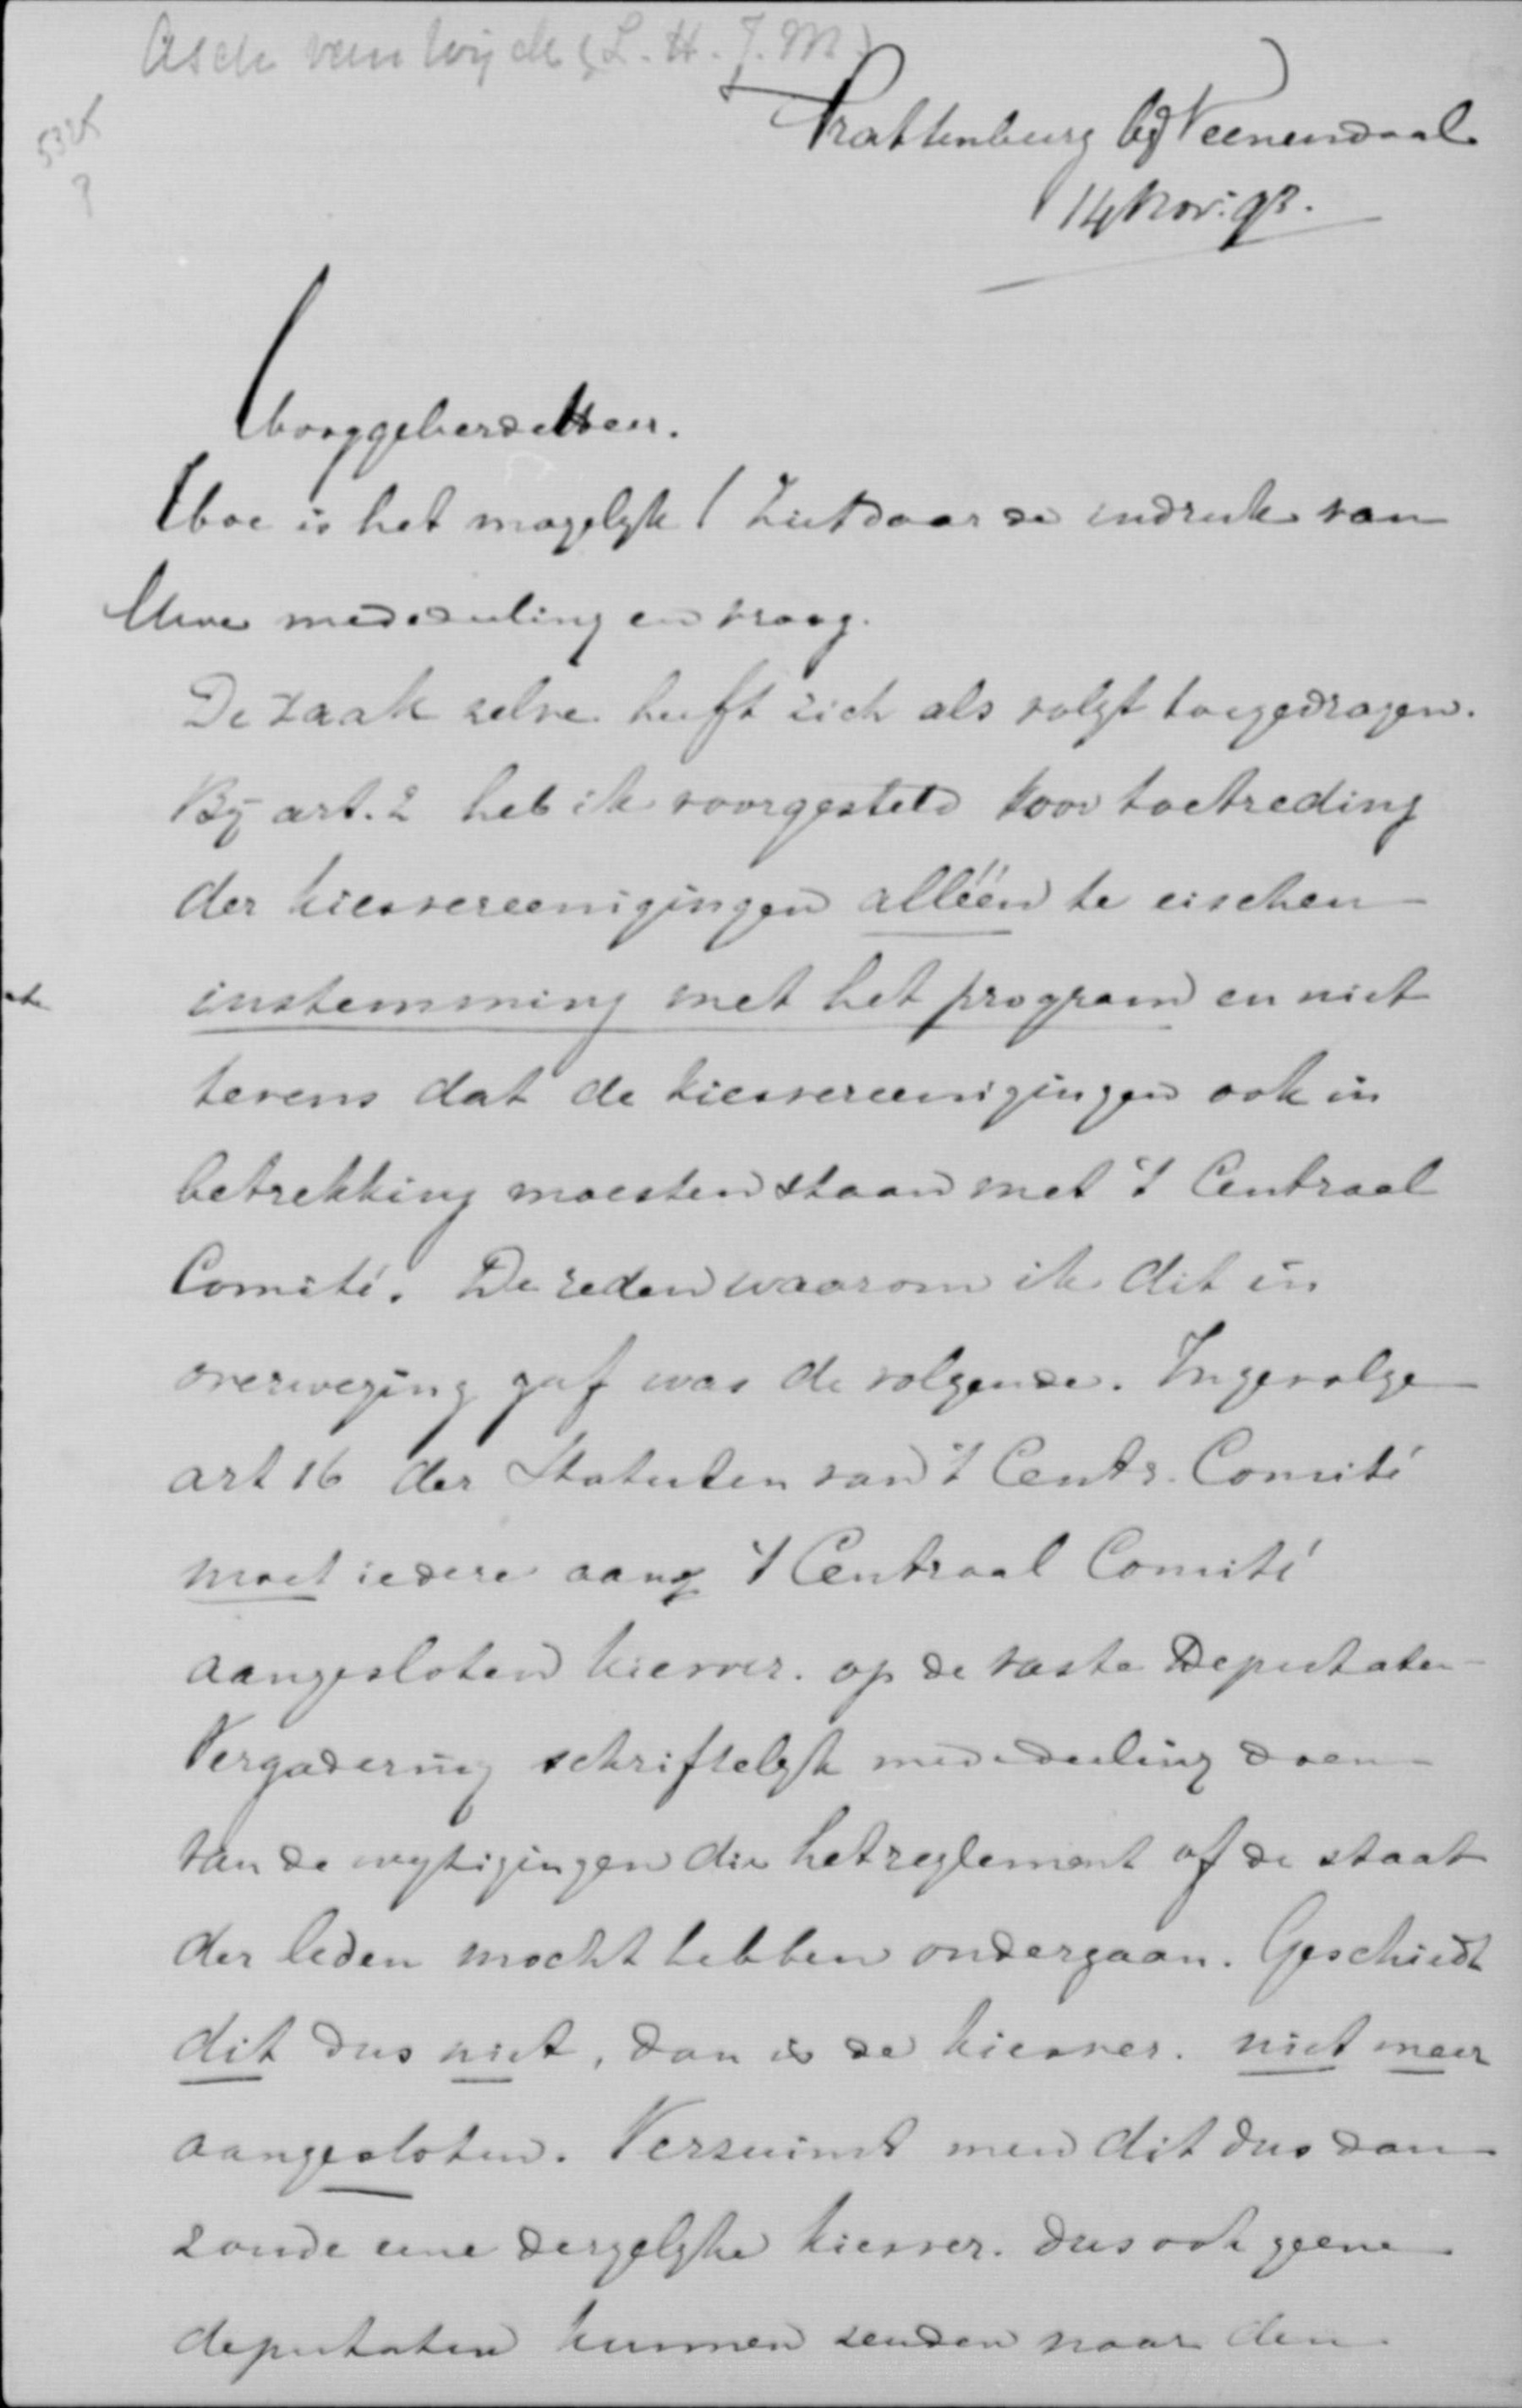 Asch van Wijck (L. H. J. M)
5325
?
Prattenburg bij Veenendaal
14 Nov: 93.
Hooggeleerde Heer.
Hoe is het mogelijk! Ziet daar de indruk van
Uwe mededeeling en vraag.
De zaak zelve heeft zich als volgt toegedragen.
Bij art. 2 heb ik voorgesteld voor toetreding
der kiesvereenigingen alléén te eischen
instemming met het program en niet
tevens dat de kiesvereenigingen ook in
betrekking moesten staan met 't Centraal
Comité. De reden waarom ik dit in
overweging gaf was de volgende. Ingevolge
art 16 der Statuten van 't Centr. Comité
moet iedere aang 't Centraal Comité
aangesloten kiesver. op de vaste Deputaten-
Vergadering schriftelijk mededeeling doen
van de wijzigingen die het reglement of de staat
der leden mocht hebben ondergaan. Geschiedt
dit dus niet, dan is de kiesver. niet meer
aangesloten. Verzuimt men dit dus dan
zoude eene dergelijke kiesver. dus ook geene
deputaten kunnen zenden naar den